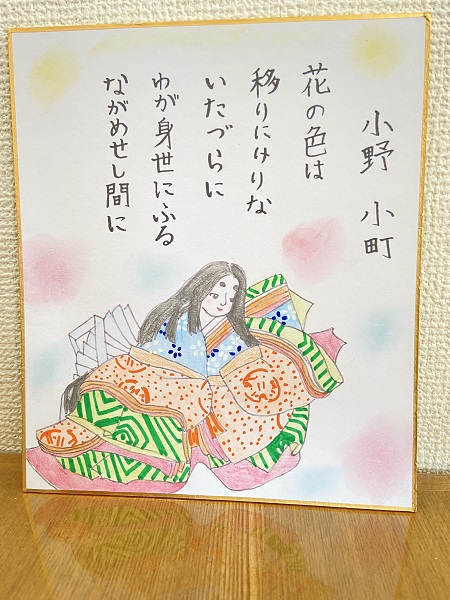 小野 小町
花の色は
移りにけりな
いたづらに
わが身世にふる
ながめせし間に